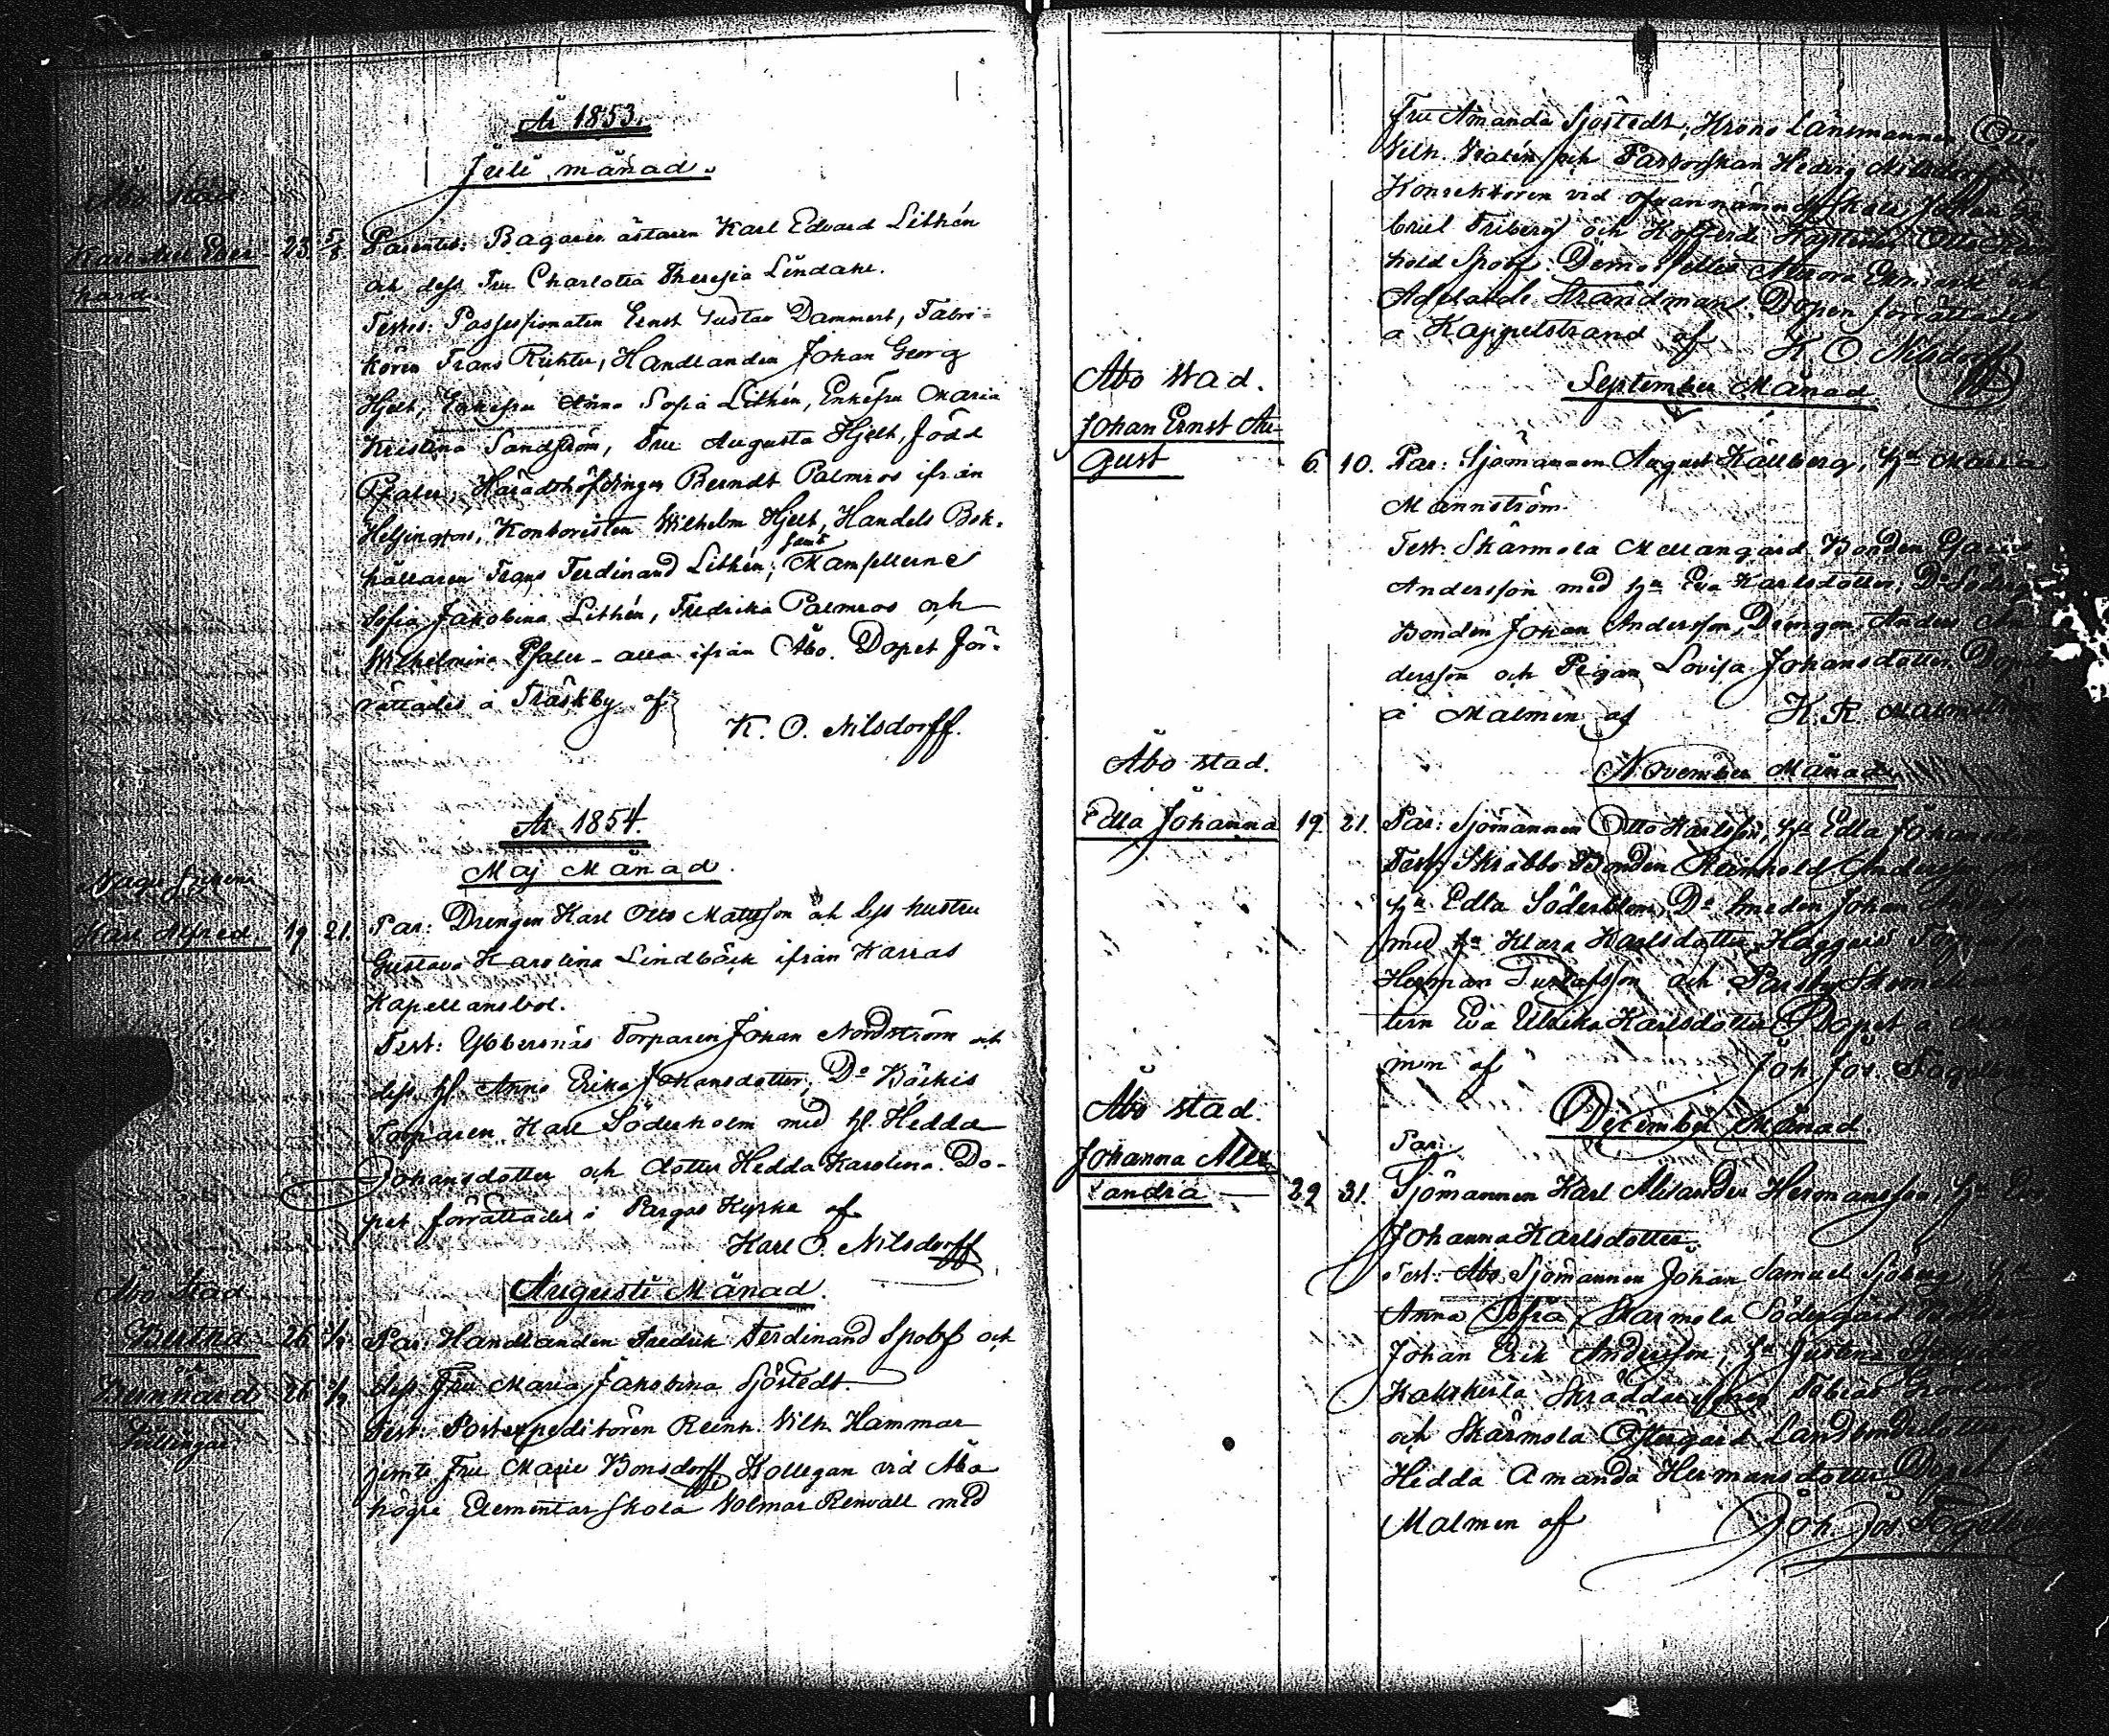 År 1853.
Juli månad.
Åbo stad
Karl Axel Eber- 23 5/8 Parentes: Bagaren ästaren Karl Edvard Lithén
hard.
och dess Fru Charlotta Theresia Lindahl.
Testes: Possessionaten Ernst Gustav Dammert, Fabri-
kören Frans Richter, Handlanden Johan Georg
Hjelt, Enkefru Anna Sofia Lithén, Enkefru Maria
Kristina Sandström, Fru Augusta Hjelt, född
Pfaler, Häradshöfdingen Berndt Palmros ifrån
Helsingfors, Kontoristen Wilhelm Hjelt, Handels Bok-
hållaren Frans Ferdinand Lithén; samt Mamsellerne
Sofia Jakobina Lithén, Fredrika Palmros och
Wilhelmina Pfaler - alla ifrån Åbo. Dopet för-
rättades å Träskby af
K. O. Nilsdorff.
År 1854.
Maj Månad.
Nagu Socken
Karl Alfred 19 21. Par: Drengen Karl Otto Mattsson och dess hustru
Gustava Karolina Lindbäck ifrån Karras
Kapellansbol.
Test: Ybbersnäs Torparen Johan Nordström och
dess H. Anna Erika Johansdotter, Do Bäckis
Torparen Karl Söderholm med H. Hedda
Johansdotter och dotter Hedda Karolina. Do-
pet förrättades i Pargas Kyrka af
Karl O. Nilsdorff
Augusti Månad.
Åbo Stad
Bertha 26 Par: Handlanden Fredrik Ferdinand Spoof och
och
Bernhard 26 dess Fru Maria Jakobina Sjöstedt.
Tvillingar.
Test: Postexpeditören Reinh. Wilh. Hammar
jemte Fru Marie Bonsdorff, Kollegan vid Åbo
högre Elementar Skola Wolmar Renvall med
Fru Amanda Sjöstedt, Krono Länsmannen Otto
Wilh. Walén och Pastorskan Hedvig Nilsdorff,
Konrektoren vid ofvannämnde Skola Johan Ga-
briel Friberg och Kofferdi Kaptenen Otto
hold Spoof. Demoiseller Aurora och
Adelaide Strandman. Dopen förrättades
å Kappelstrand af K O Nilsdorff
September Månad
Åbo stad.
Johan Ernst Au-
gust 6 10. Par: Sjömannen August Källberg, H. Maria
Mannström.
Test: Skärmola Mellangård Bonden
Andersson med H. Eva Karlsdotter, Do Söderg
Bonden Johan Andersson, Drengen Anders An-
dersson och Pigan Lovisa Johansdotter.
å Malmen af K. R. Malms
November Månad
Åbo stad.
Edla Johanna 19 21. Par: Sjömannen Otto Karlsson, H. Edla
Test: Skräbbo Bonden Reinhold Andersson
H. Edla Söderblom, Do Smeden Johan
med H. Klara Karlsdotter,
Herman Gustafsson och Parsby
tern Eva Ulrika Karlsdotter. Dopet å Mal-
men af Joh. Jos. Fogelberg
December Månad.
Åbo stad.
Par:
Johanna Alex-
andra 29 31. Sjömannen Karl Alexander Hermansson, H.
Johanna Karlsdotter.
Test: Åbo Sjömannen Johan Samuel Sjöberg, H.
Anna Sofia, Skärmola Södergård
Johan Erik Andersson, H. Justina
Kattkerta Skräddaren Tobias
och Skärmola Östergård Landbondedottern
Hedda Amanda Hermansdotter. Dopet
Malmen af Joh Jos Fogelberg